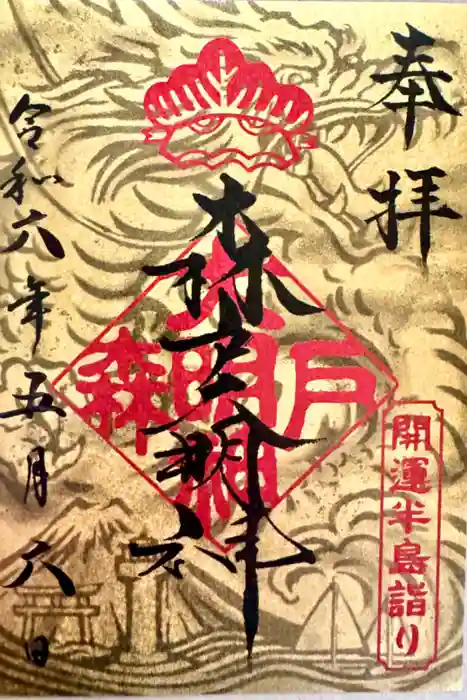 奉拝
開運半島詣り
森戸明神
森戸大明神
令和六年五月六日